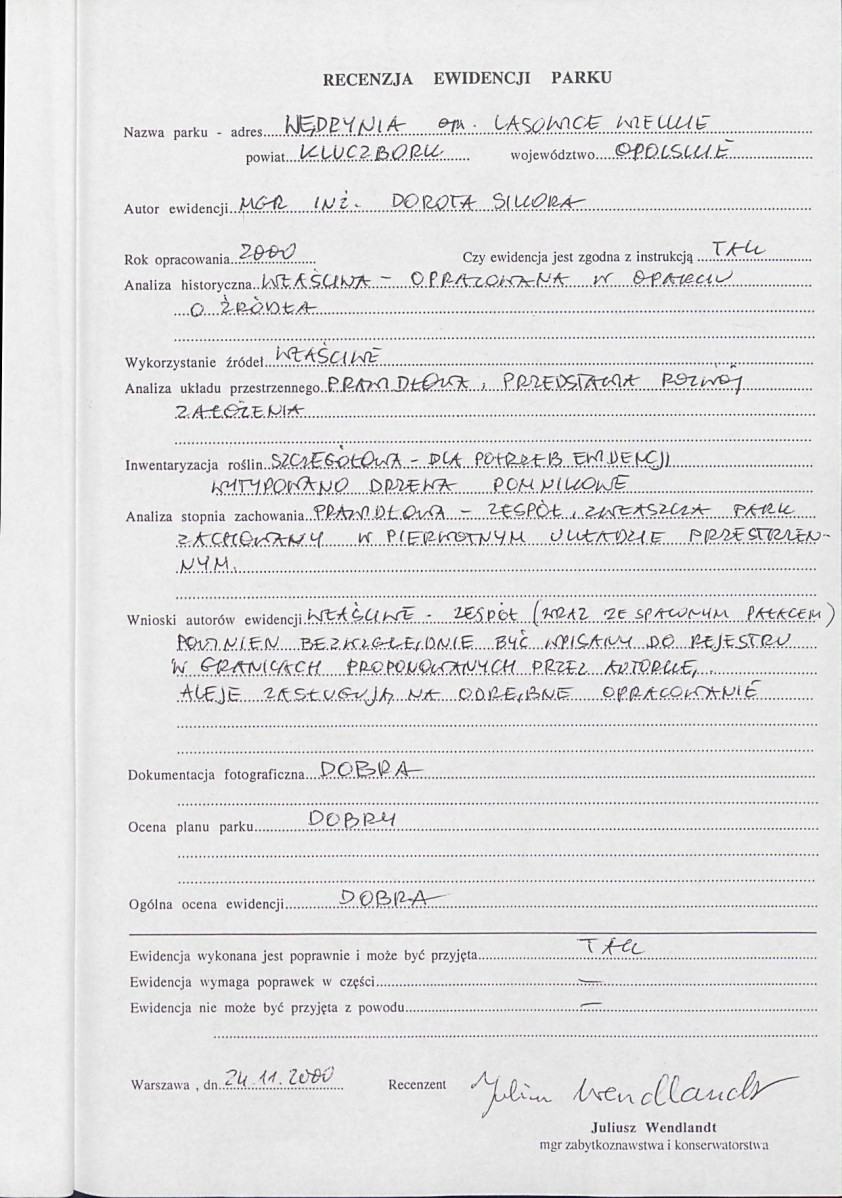 RECENZJA EWIDENCJI PARKU
Nazwa parku - adres....WĘDRYNIA gm. LASOWICE WIELKIE
powiat...KLUCZBORK....... województwo.....OPOLSKIE
Autor ewidencji..MGR INŻ. DOROTA SIKORA
Rok opracowania..2000 Czy ewidencja jest zgodna z instrukcją ...TAK
Analiza historyczna..WŁAŚCIWA - OPRACOWANA W OPARCIU
O ŹRÓDŁA
Wykorzystanie źródeł..WŁAŚCIWE
Analiza układu przestrzennego..PRAWIDŁOWA, PRZEDSTAWIA ROZWÓJ
ZAŁOŻENIA
Inwentaryzacja roślin..SZCZEGÓŁOWA - DLA POTRZEB EWIDENCJI
WYTYPOWANO DRZEWA POMNIKOWE
Analiza stopnia zachowania..PRAWIDŁOWA - ZESPÓŁ, ZWŁASZCZA PARK
ZACHOWANY W PIERWOTNYM UKŁADZIE PRZESTRZEN-
NYM.
Wnioski autorów ewidencji.WŁAŚCIWE - ZESPÓŁ (WRAZ ZE SPALONYM PAŁACEM)
POWINIEN BEZWZGLĘDNIE BYĆ WPISANY DO REJESTRU
W GRANICACH PROPONOWANYCH PRZEZ AUTORKĘ,
ALEJE ZASŁUGUJĄ NA ODRĘBNE OPRACOWANIE
Dokumentacja fotograficzna...DOBRA
Ocena planu parku............DOBRY
Ogólna ocena ewidencji............DOBRA
Ewidencja wykonana jest poprawnie i może być przyjęta.....TAK
Ewidencja wymaga poprawek w części.....—
Ewidencja nie może być przyjęta z powodu.....—
Warszawa , dn..24.11.2000 Recenzent Juliusz Wendlandt
Juliusz Wendlandt
mgr zabytkoznawstwa i konserwatorstwa